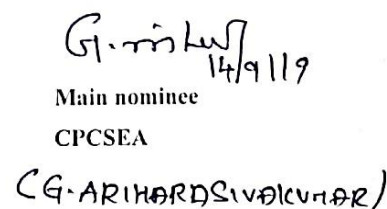 14/9/19
Main nominee
CPCSEA
(G.ARIHARASIVAKUMAR)